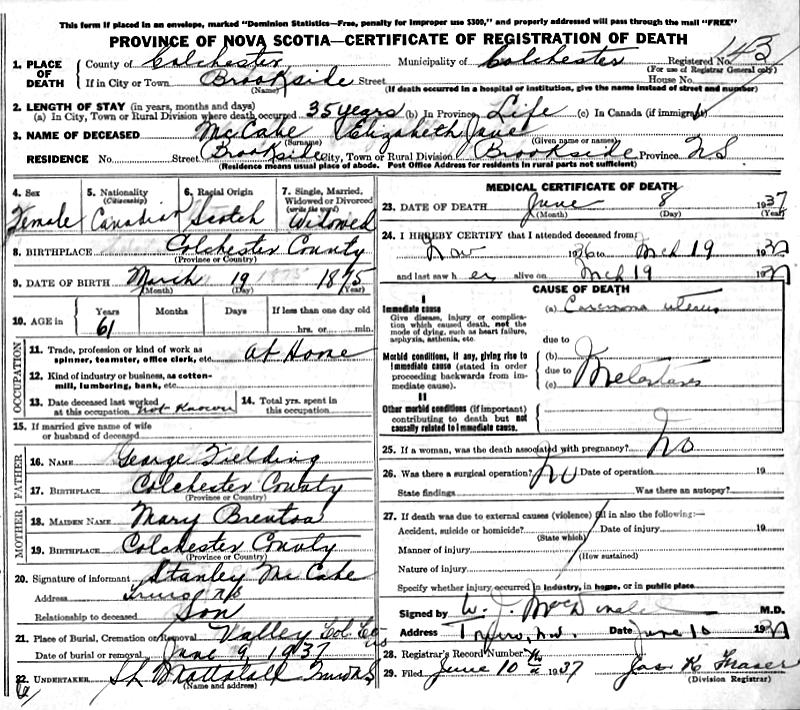 This form if placed in an envelope, marked "Dominion Statistics—Free, penalty for improper use $300," and properly addressed will pass through the mail "FREE"
PROVINCE OF NOVA SCOTIA—CERTIFICATE OF REGISTRATION OF DEATH
1. PLACE OF DEATH County of Colchester Municipality of Colchester Registered No. 143
(For use of Registrar General only)
If in City or Town Brookside Street House No.
(Name) (If death occurred in a hospital or institution, give the name instead of street and number)
2. LENGTH OF STAY (in years, months and days)
(a) In City, Town or Rural Division where death occurred 35 years (b) In Province Life (c) In Canada (if immigrant)
3. NAME OF DECEASED McCabe Elizabeth Jane
(Surname) (Given name or names)
RESIDENCE No. Street Brookside City, Town or Rural Division Brookside Province N S
(Residence means usual place of abode. Post Office Address for residents in rural parts not sufficient)
4. Sex Female
5. Nationality (Citizenship) Canadian
6. Racial Origin Scotch
7. Single, Married, Widowed or Divorced (write the word) Widowed
8. BIRTHPLACE Colchester County
(Province or Country)
9. DATE OF BIRTH March 19 1875
(Month) (Day) (Year)
10. AGE in Years Months Days If less than one day old
61 hrs. or min.
OCCUPATION
11. Trade, profession or kind of work as spinner, teamster, office clerk, etc. at Home
12. Kind of industry or business, as cotton-mill, lumbering, bank, etc.
13. Date deceased last worked at this occupation not known
14. Total yrs. spent in this occupation
15. If married give name of wife or husband of deceased
FATHER
16. NAME George Fielding
17. BIRTHPLACE Colchester County
(Province or Country)
MOTHER
18. MAIDEN NAME Mary Brenton
19. BIRTHPLACE Colchester County
(Province or Country)
20. Signature of informant Stanley McCabe
Address Truro NS
Relationship to deceased Son
21. Place of Burial, Cremation or Removal Valley Col. Co
Date of burial or removal June 9, 1937
22. UNDERTAKER Mattatall Truro NS
(Name and address)
MEDICAL CERTIFICATE OF DEATH
23. DATE OF DEATH June 8 1937
(Month) (Day) (Year)
24. I HEREBY CERTIFY that I attended deceased from
Nov 1936 to Mch 19 1937
and last saw her alive on Mch 19 1937
CAUSE OF DEATH
I
Immediate cause
Give disease, injury or complication which caused death, not the mode of dying, such as heart failure, asphyxia, asthenia, etc.
(a) Carcinoma uterus
due to
Morbid conditions, if any, giving rise to immediate cause (stated in order proceeding backwards from immediate cause).
(b)
due to
(c) Metastases
II
Other morbid conditions (if important) contributing to death but not causally related to immediate cause.
25. If a woman, was the death associated with pregnancy? No
26. Was there a surgical operation? No Date of operation 19
State findings Was there an autopsy?
27. If death was due to external causes (violence) fill in also the following:—
Accident, suicide or homicide? Date of injury 19
(State which)
Manner of injury
(How sustained)
Nature of injury
Specify whether injury occurred in industry, in home, or in public place
Signed by W. J. M.D.
Address Truro, N.S. Date June 10 1937
28. Registrar's Record Number
29. Filed June 10 1937 Jas. K. Fraser
(Division Registrar)